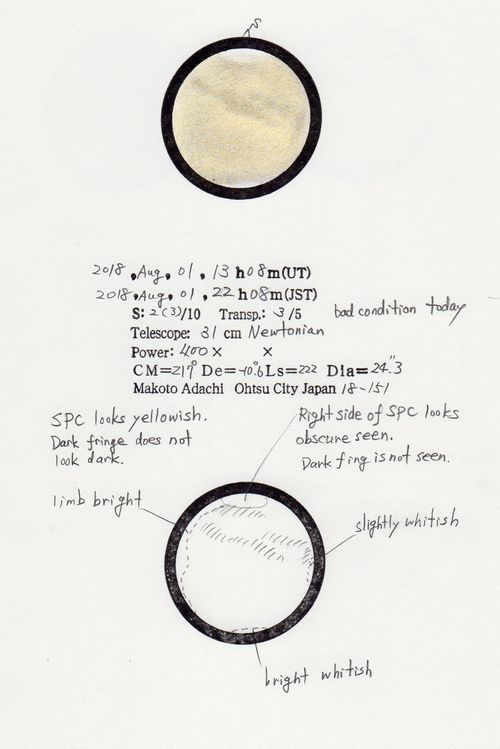 S
2018, Aug, 01, 13 h 08 m (UT)
2018, Aug, 01, 22 h 08 m (JST)
S: 2(3)/10 Transp.: 3/5 bad condition today
Telescope: 31 cm Newtonian
Power: 400 × ×
CM=217° De=-10.°6 Ls=222 Dia=24."3
Makoto Adachi Ohtsu City Japan 18-151
SPC looks yellowish.
Dark fringe does not
look dark.
Right side of SPC looks
obscure seen.
Dark fring is not seen.
limb bright
slightly whitish
bright whitish